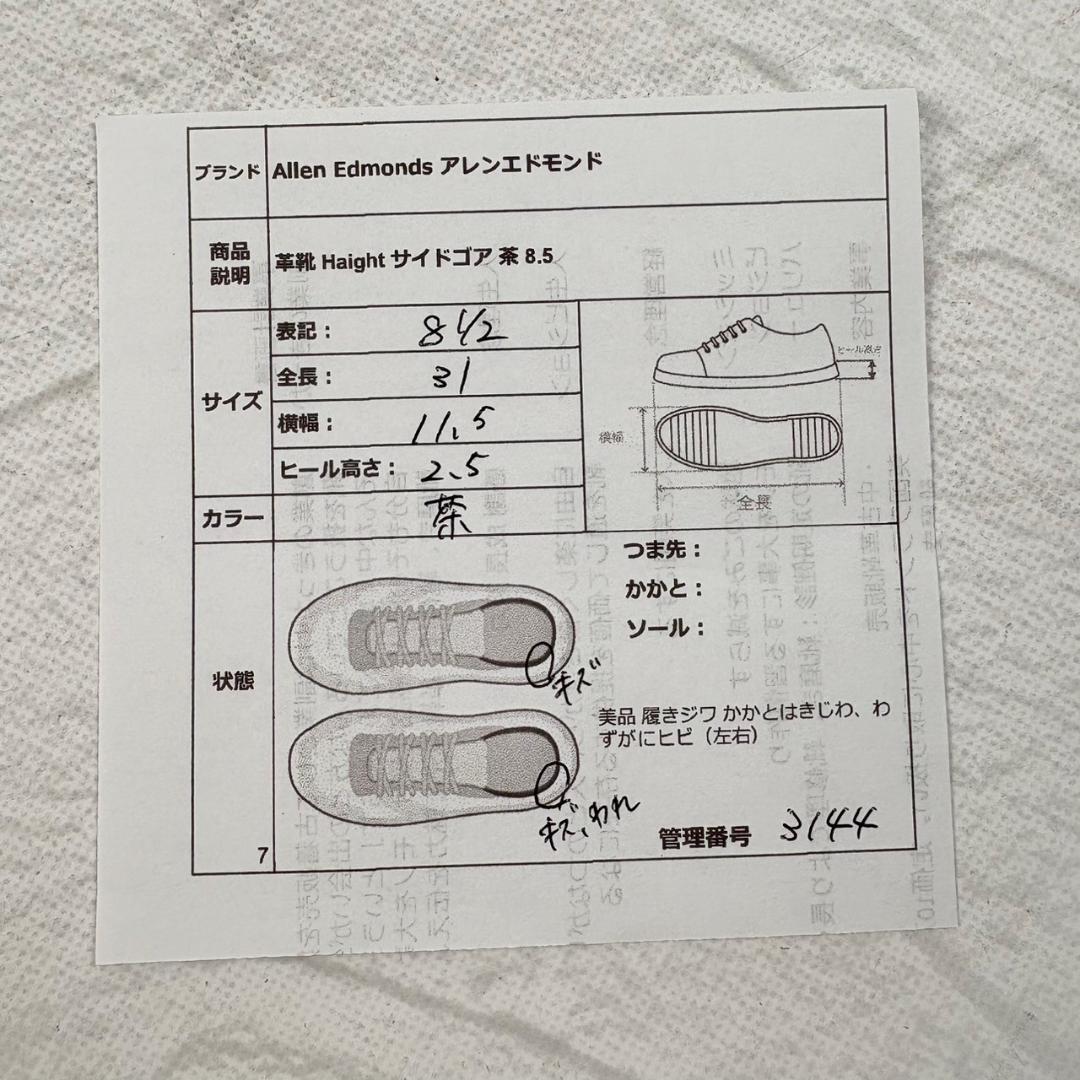 ブランド
Allen Edmonds アレンエドモンド
商品
説明
革靴 Haight サイドゴア 茶 8.5
サイズ
表記： 8 1/2
全長： 31
横幅： 11.5
ヒール高さ： 2.5
ヒール高さ
横幅
全長
カラー
茶
状態
つま先：
かかと：
ソール：
キズ
キズ、われ
美品 履きジワ かかとはきじわ、わ
ずがにヒビ（左右）
管理番号 3144
7